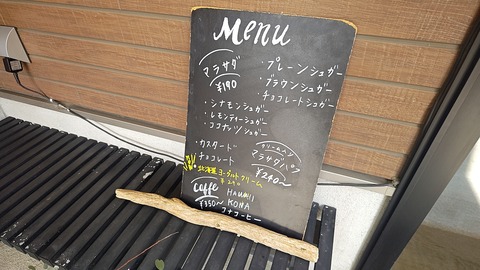 Menu
マラサダ
¥190
プレーンシュガー
・ブラウンシュガー
・チョコレートシュガー
・シナモンシュガー
・レモンティーシュガー
・ココナッツシュガー
クリームイン
マラサダパフ
¥240〜
・カスタード
・チョコレート
北海道ヨーグルトクリーム
Coffee
HAWAII
¥350〜
KONA
コナコーヒー